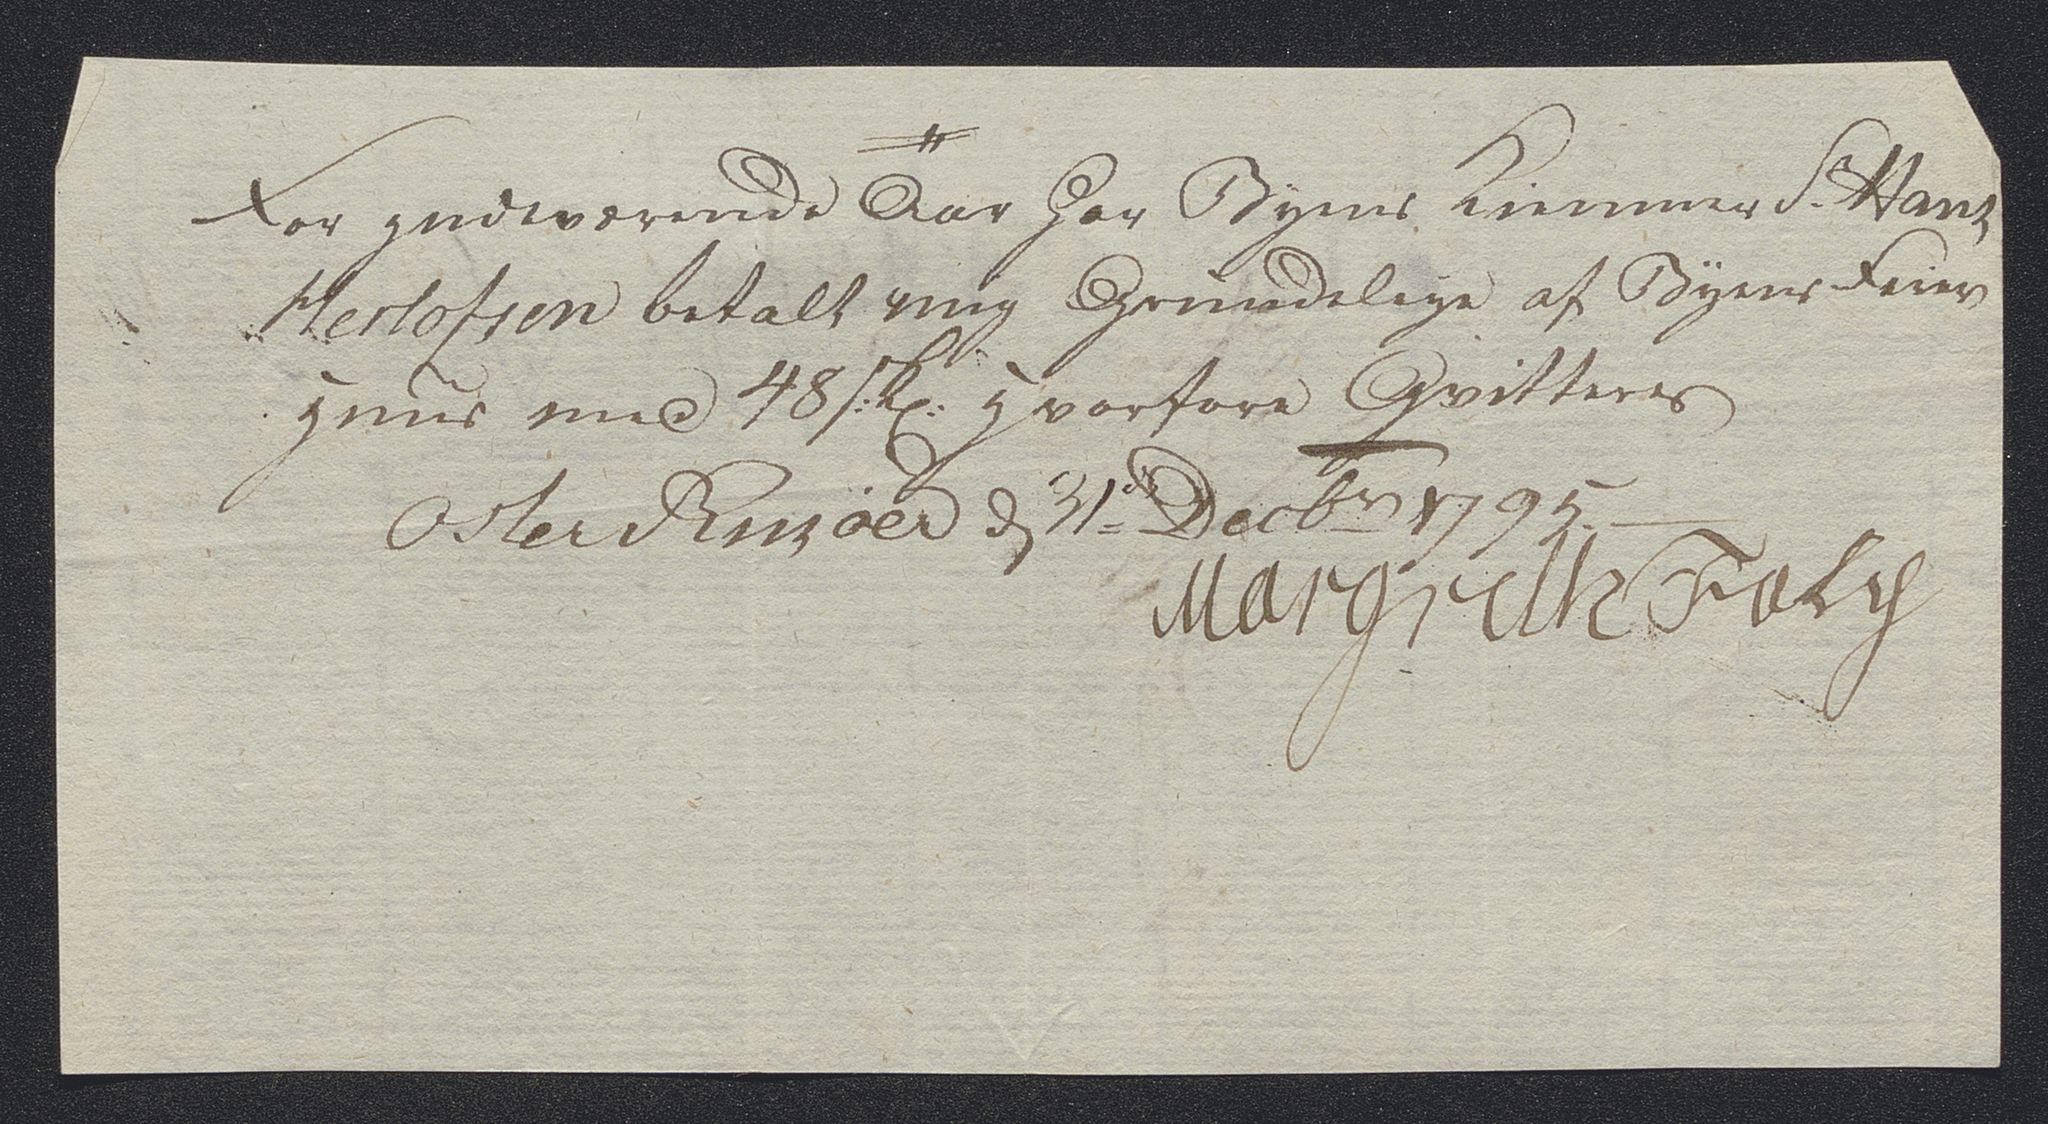 For indeværende Aar har Byens Kiemner Sr Hans
Herlofsen betalt mig Grundeleye af Byens Feier
Huus med 48 sk: hvorfore Qvitteres
Oster Riisöer d 31te Decbr 1795.
Margrethe Foly